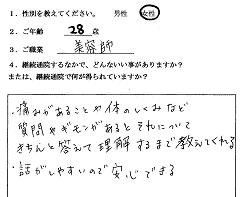 1．性別を教えてください。 男性 女性
2．ご年齢 28 歳
3．ご職業 美容師
4．継続通院するなかで、どんないい事がありますか？
または、継続通院で何が得られていますか？
・痛みがあることや体のしくみなど
質問やギモンがあるとそれについて
きちんと答えて理解するまで教えてくれる
・話がしやすいので安心できる